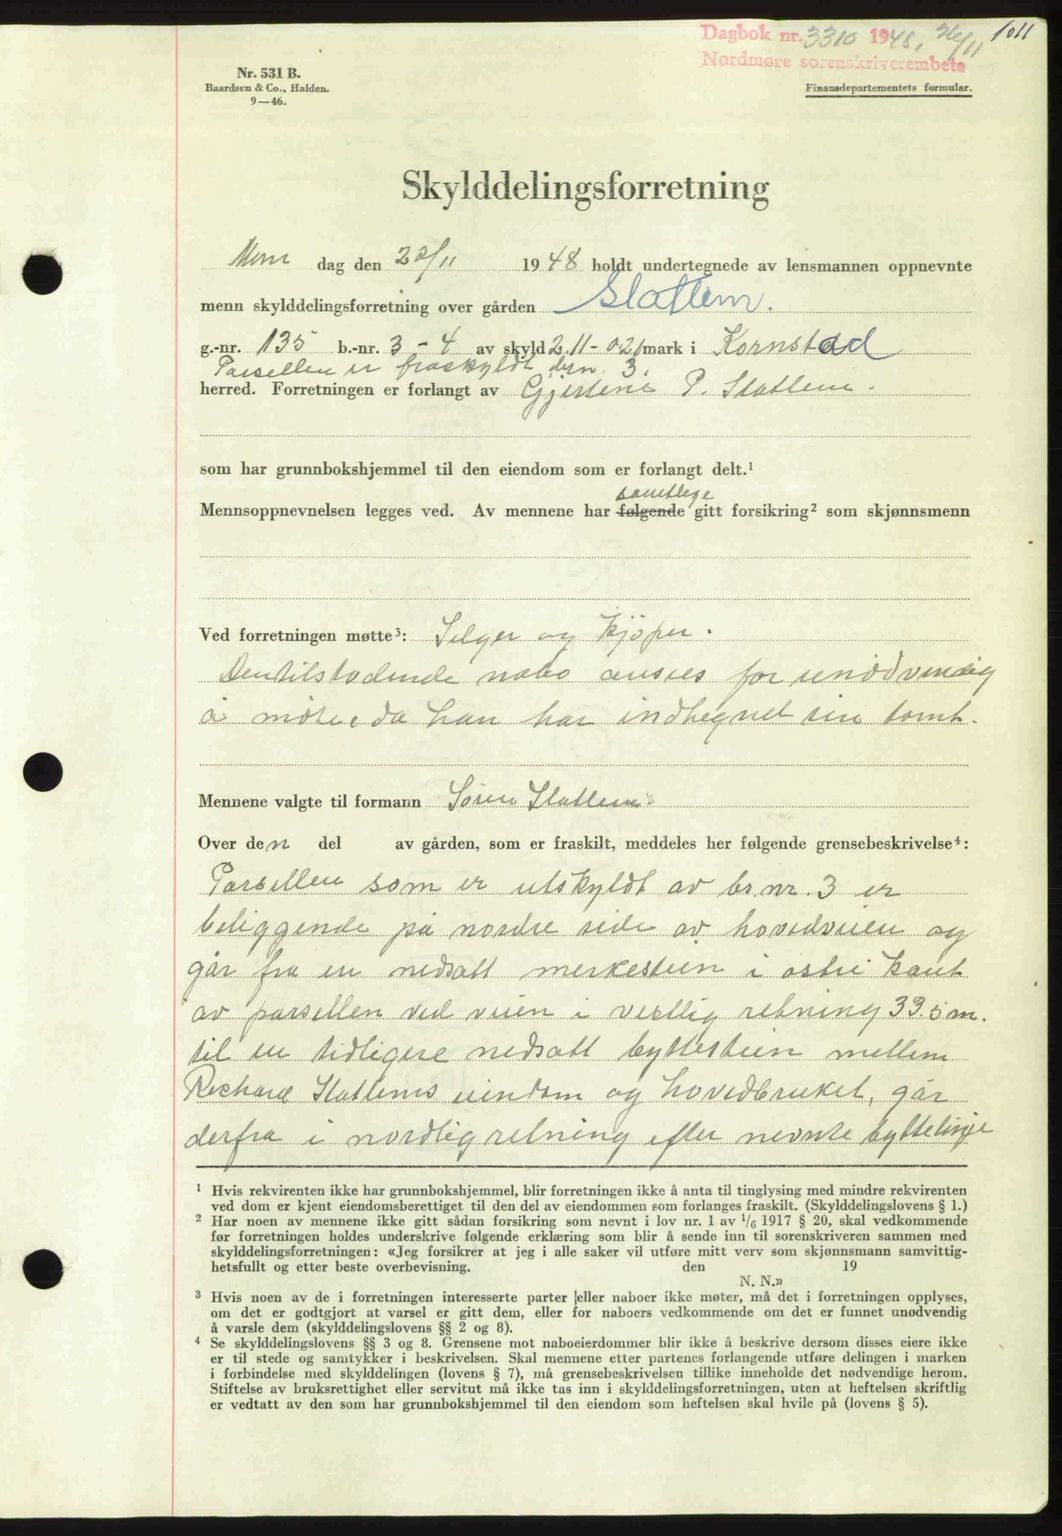 1011
Dagbok nr. 3310 1948, 26/11
Nordmøre sorenskriverembete
Nr. 531 B.
Baardsen & Co., Halden.
9—46.
Finansdepartementets formular.
Skylddelingsforretning
dag den 22/11 1948 holdt undertegnede av lensmannen oppnevnte
menn skylddelingsforretning over gården Slatlem.
g.-nr. 135 b.-nr. 3 - 4 av skyld 2.11 - 0.21 mark i Kornstad
Parsellen er fraskyldt brn. 3.
herred. Forretningen er forlangt av P. Slatlem.
som har grunnbokshjemmel til den eiendom som er forlangt delt.¹
samtlige
Mennsoppnevnelsen legges ved. Av mennene har følgende gitt forsikring² som skjønnsmenn
Ved forretningen møtte³: Selger og kjøper.
Den tilstødende nabo ansees for unødvendig
å møte, da han har indhegnet sin tomt.
Mennene valgte til formann Søren Slatlem.
Over den del av gården, som er fraskilt, meddeles her følgende grensebeskrivelse⁴:
Parsellen som er utskyldt av br.nr. 3 er
beliggende på nordre side av hovedveien og
går fra en nedsatt merkestein i østre kant
av parsellen ved veien i vestlig retning 33.5 m.
til en tidligere nedsatt byttestein mellem
Richard Slatlems eiendom og hovedbruket, går
derfra i nordlig retning efter nevnte byttelinje
¹ Hvis rekvirenten ikke har grunnbokshjemmel, blir forretningen ikke å anta til tinglysing med mindre rekvirenten
ved dom er kjent eiendomsberettiget til den del av eiendommen som forlanges fraskilt. (Skylddelingslovens § 1.)
² Har noen av mennene ikke gitt sådan forsikring som nevnt i lov nr. 1 av 1/6 1917 § 20, skal vedkommende
før forretningen holdes underskrive følgende erklæring som blir å sende inn til sorenskriveren sammen med
skylddelingsforretningen: «Jeg forsikrer at jeg i alle saker vil utføre mitt verv som skjønnsmann samvittig-
hetsfullt og etter beste overbevisning. den 19
N. N.»
³ Hvis noen av de i forretningen interesserte parter eller naboer ikke møter, må det i forretningen opplyses,
om det er godtgjort at varsel er gitt dem, eller for naboers vedkommende om det er funnet unødvendig
å varsle dem (skylddelingslovens §§ 2 og 8).
⁴ Se skylddelingslovens §§ 3 og 8. Grensene mot naboeierdommer blir ikke å beskrive dersom disses eiere ikke
er til stede og samtykker i beskrivelsen. Skal mennene etter partenes forlangende utføre delingen i marken
i forbindelse med skylddelingen (lovens § 7), må grensebeskrivelsen tillike inneholde det nødvendige herom.
Stiftelse av bruksrettighet eller servitut må ikke tas inn i skylddelingsforretningen, uten at heftelsen skriftlig
er vedtatt av den som har grunnbokshjemmel til den eiendom som heftelsen skal hvile på (lovens § 5).